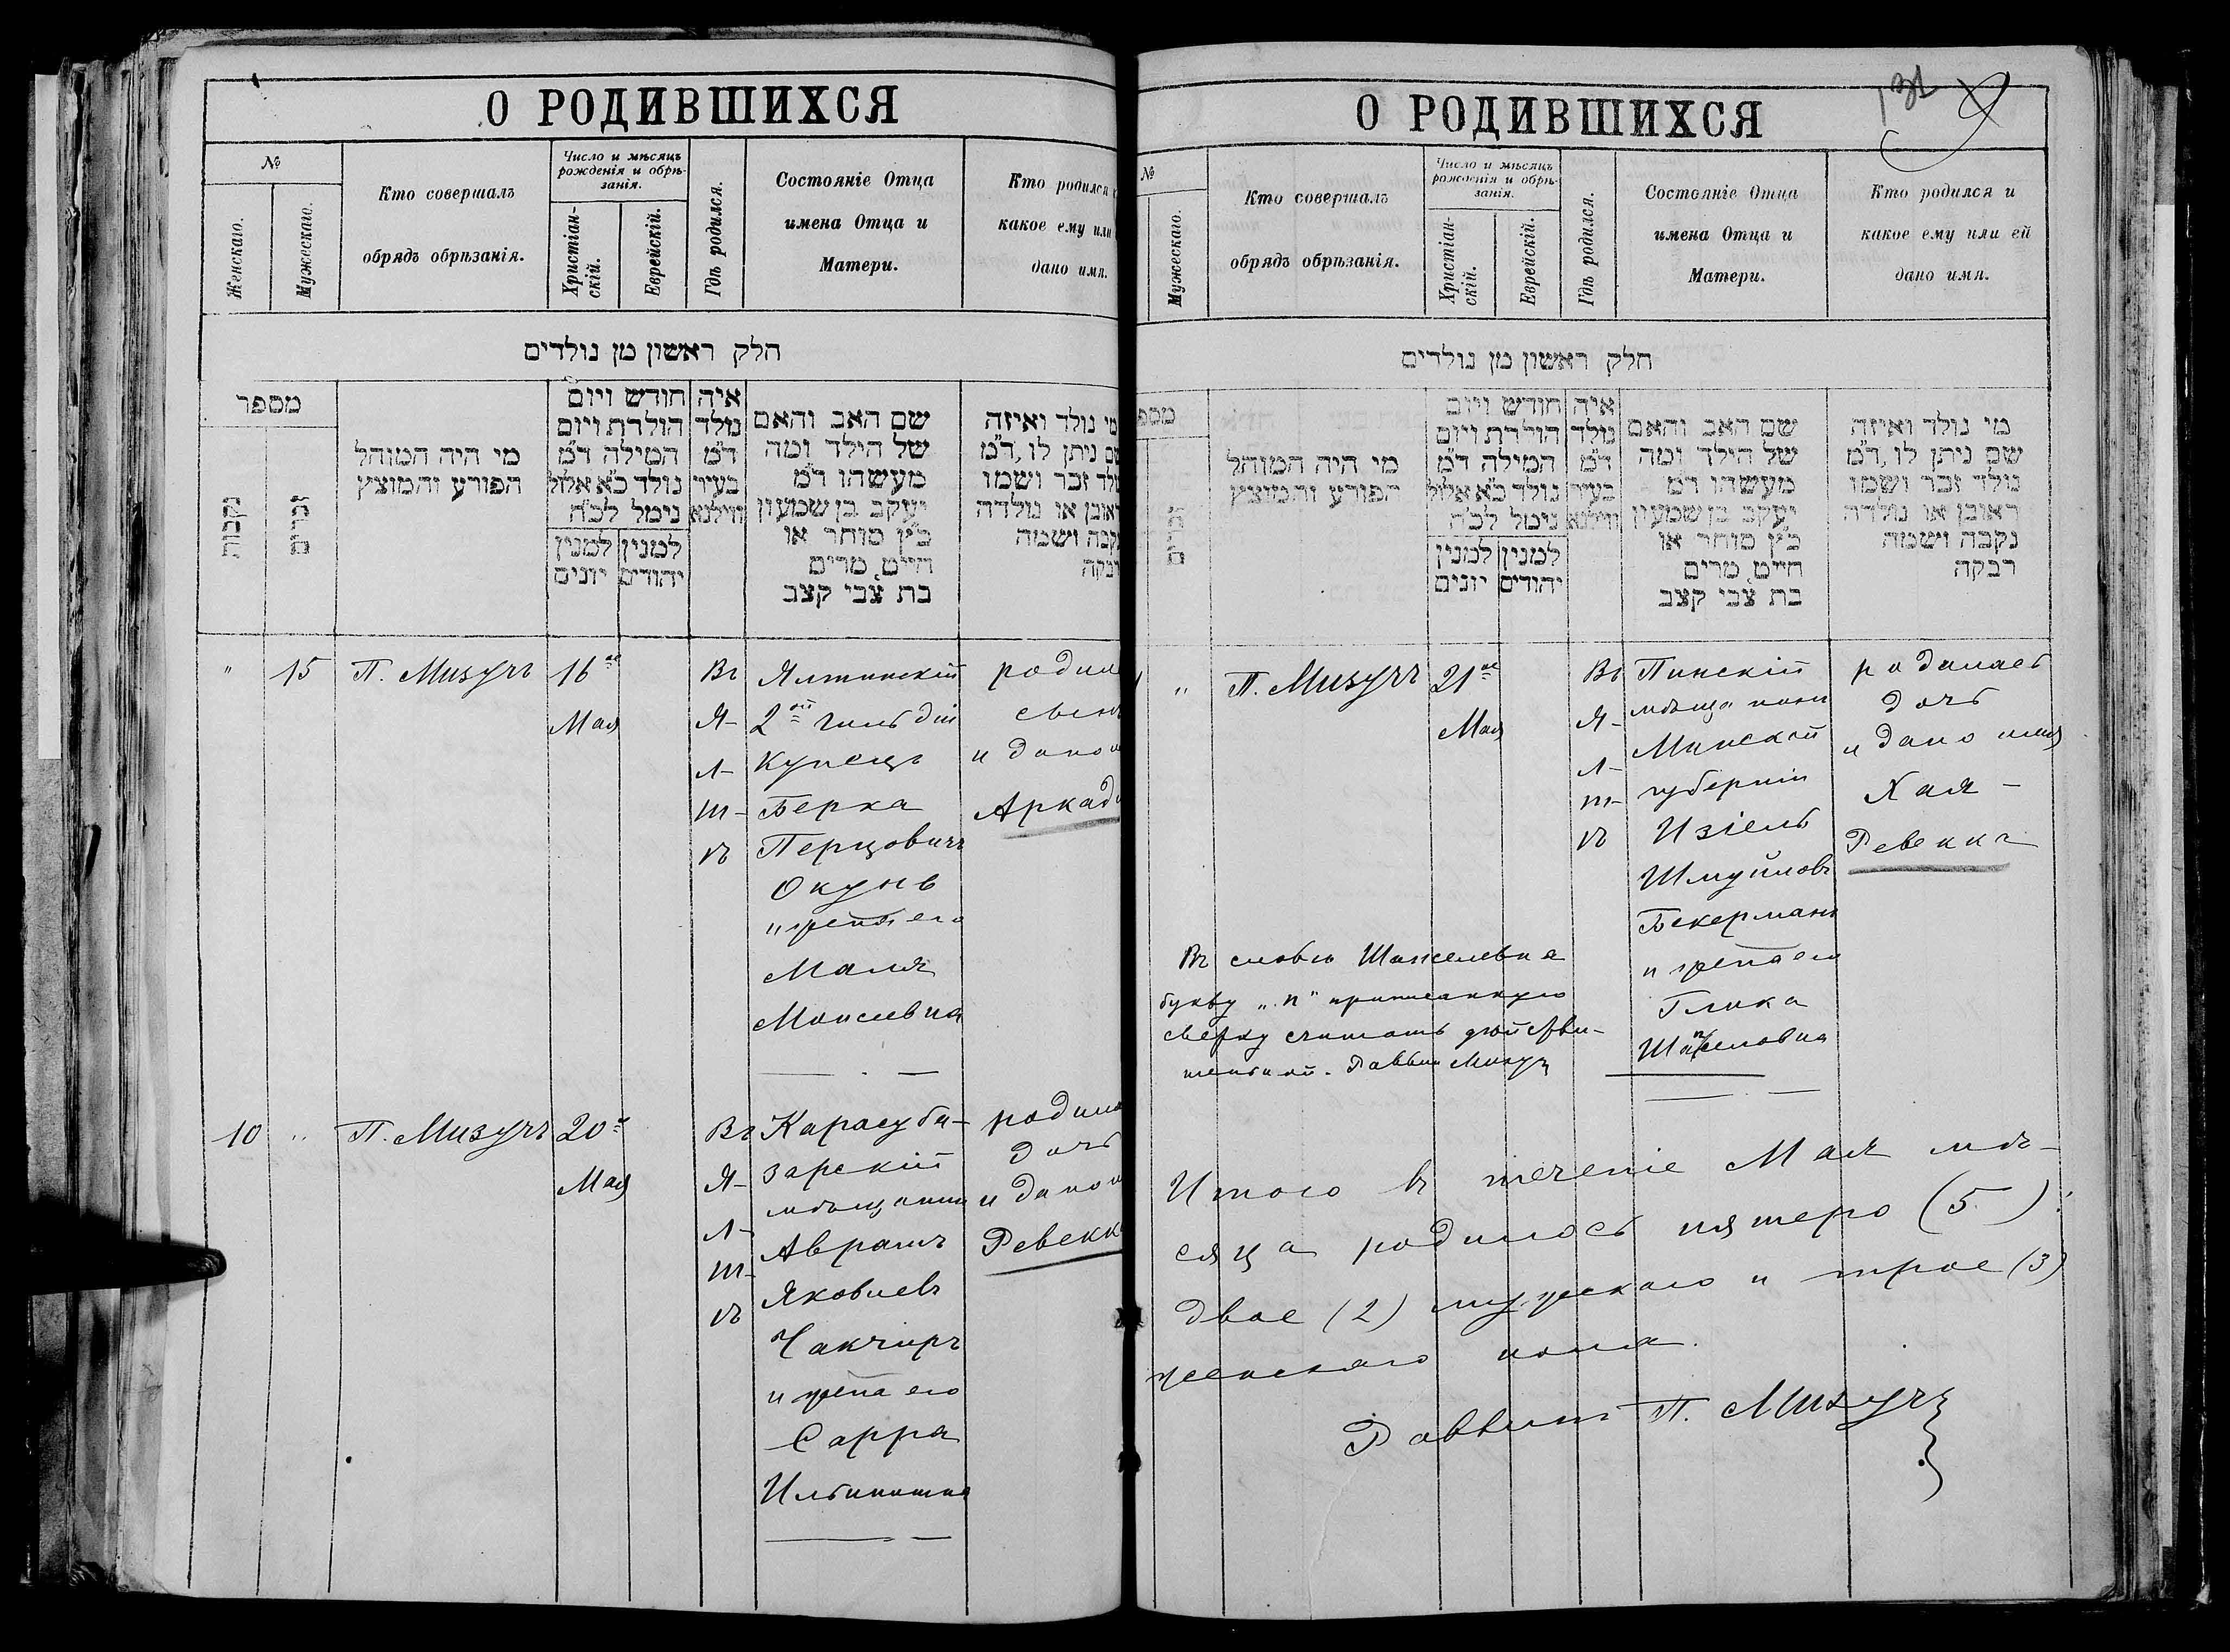 О РОДИВШИХСЯ
№
Женскаго.
Мужескаго.
Кто совершалъ
обрядъ обрѣзанія.
Число и мѣсяцъ
рожденія и обрѣ-
занія.
Христіан-
скій.
Еврейскій.
Гдѣ родился.
Состояніе Отца
имена Отца и
Матери.
Кто родился
какое ему или
дано имя.
חלק ראשון מן נולדים
מספר
נקבות
זכרים
מי היה המוהל
הפורע והמוצץ
חודש ויום
הולדת ויום
המילה ד"מ
נולד כ"א אלול
נימל לכ"ח
למנין
יהודים
למנין
יונים
איה
נולד
ד"מ
בעיר
ווילנא
שם האב והאם
של הילד ומה
מעשהו ד"מ
יעקב בן שמעון
כ"ץ סוחר או
חייט, מרים
בת צבי קצב
מי נולד ואיזה
שם ניתן לו, ד"מ
נולד זכר ושמו
ראובן או נולדה
נקבה ושמה
רבקה
" 15 П. Мизучъ
16го
Мая
Въ
Я-
л-
т-
ѣ
Ялтинскій
2ой гильдіи
Купецъ
Берка
Перцовичъ
Окунь
и жена его
Маля
Моисеевна
родил
сынъ
и дано
Аркад
10 " П. Мизучъ
20го
Мая
Въ
Я-
л-
т-
ѣ
Карасуба-
зарскій
мѣщанинъ
Аврамъ
Яковлевъ
Чакчиръ
и жена его
Сарра
родил
дочь
и дано
Ревекк
О РОДИВШИХСЯ
131
№
Мужескаго.
Кто совершалъ
обрядъ обрѣзанія.
Число и мѣсяцъ
рожденія и обрѣ-
занія.
Христіан-
скій.
Еврейскій.
Гдѣ родился.
Состояніе Отца
имена Отца и
Матери.
Кто родился и
какое ему или ей
дано имя.
חלק ראשון מן נולדים
מספ
זכרים
מי היה המוהל
הפורע והמוצץ
חודש ויום
הולדת ויום
המילה ד"מ
נולד כ"א אלול
נימל לכ"ח
למנין
יהודים
למנין
יונים
איה
נולד
ד"מ
בעיר
ווילנא
שם האב והאם
של הילד ומה
מעשהו ד"מ
יעקב בן שמעון
כ"ץ סוחר או
חייט, מרים
בת צבי קצב
מי נולד ואיזה
שם ניתן לו, ד"מ
נולד זכר ושמו
ראובן או נולדה
נקבה ושמה
רבקה
" П. Мизучъ
21го
Мая
Въ
Я-
л-
т-
ѣ
Пинскій
мѣщанинъ
Минской
губерніи
Изіель
Шмуйловъ
Бекерманъ
и жена его
Глика
Шапселовна
родилась
дочь
и дано имя
Хая -
Ревекка
Въ словѣ Шапселевна
букву „п" приписанную
сверху считать дѣйстви-
тельной. Раввинъ Мизучъ
Итого въ теченіе Мая мѣ-
сяца родилось пятеро (5):
двое (2) мужескаго и трое (3)
женскаго пола.
Раввинъ П. Мизучъ